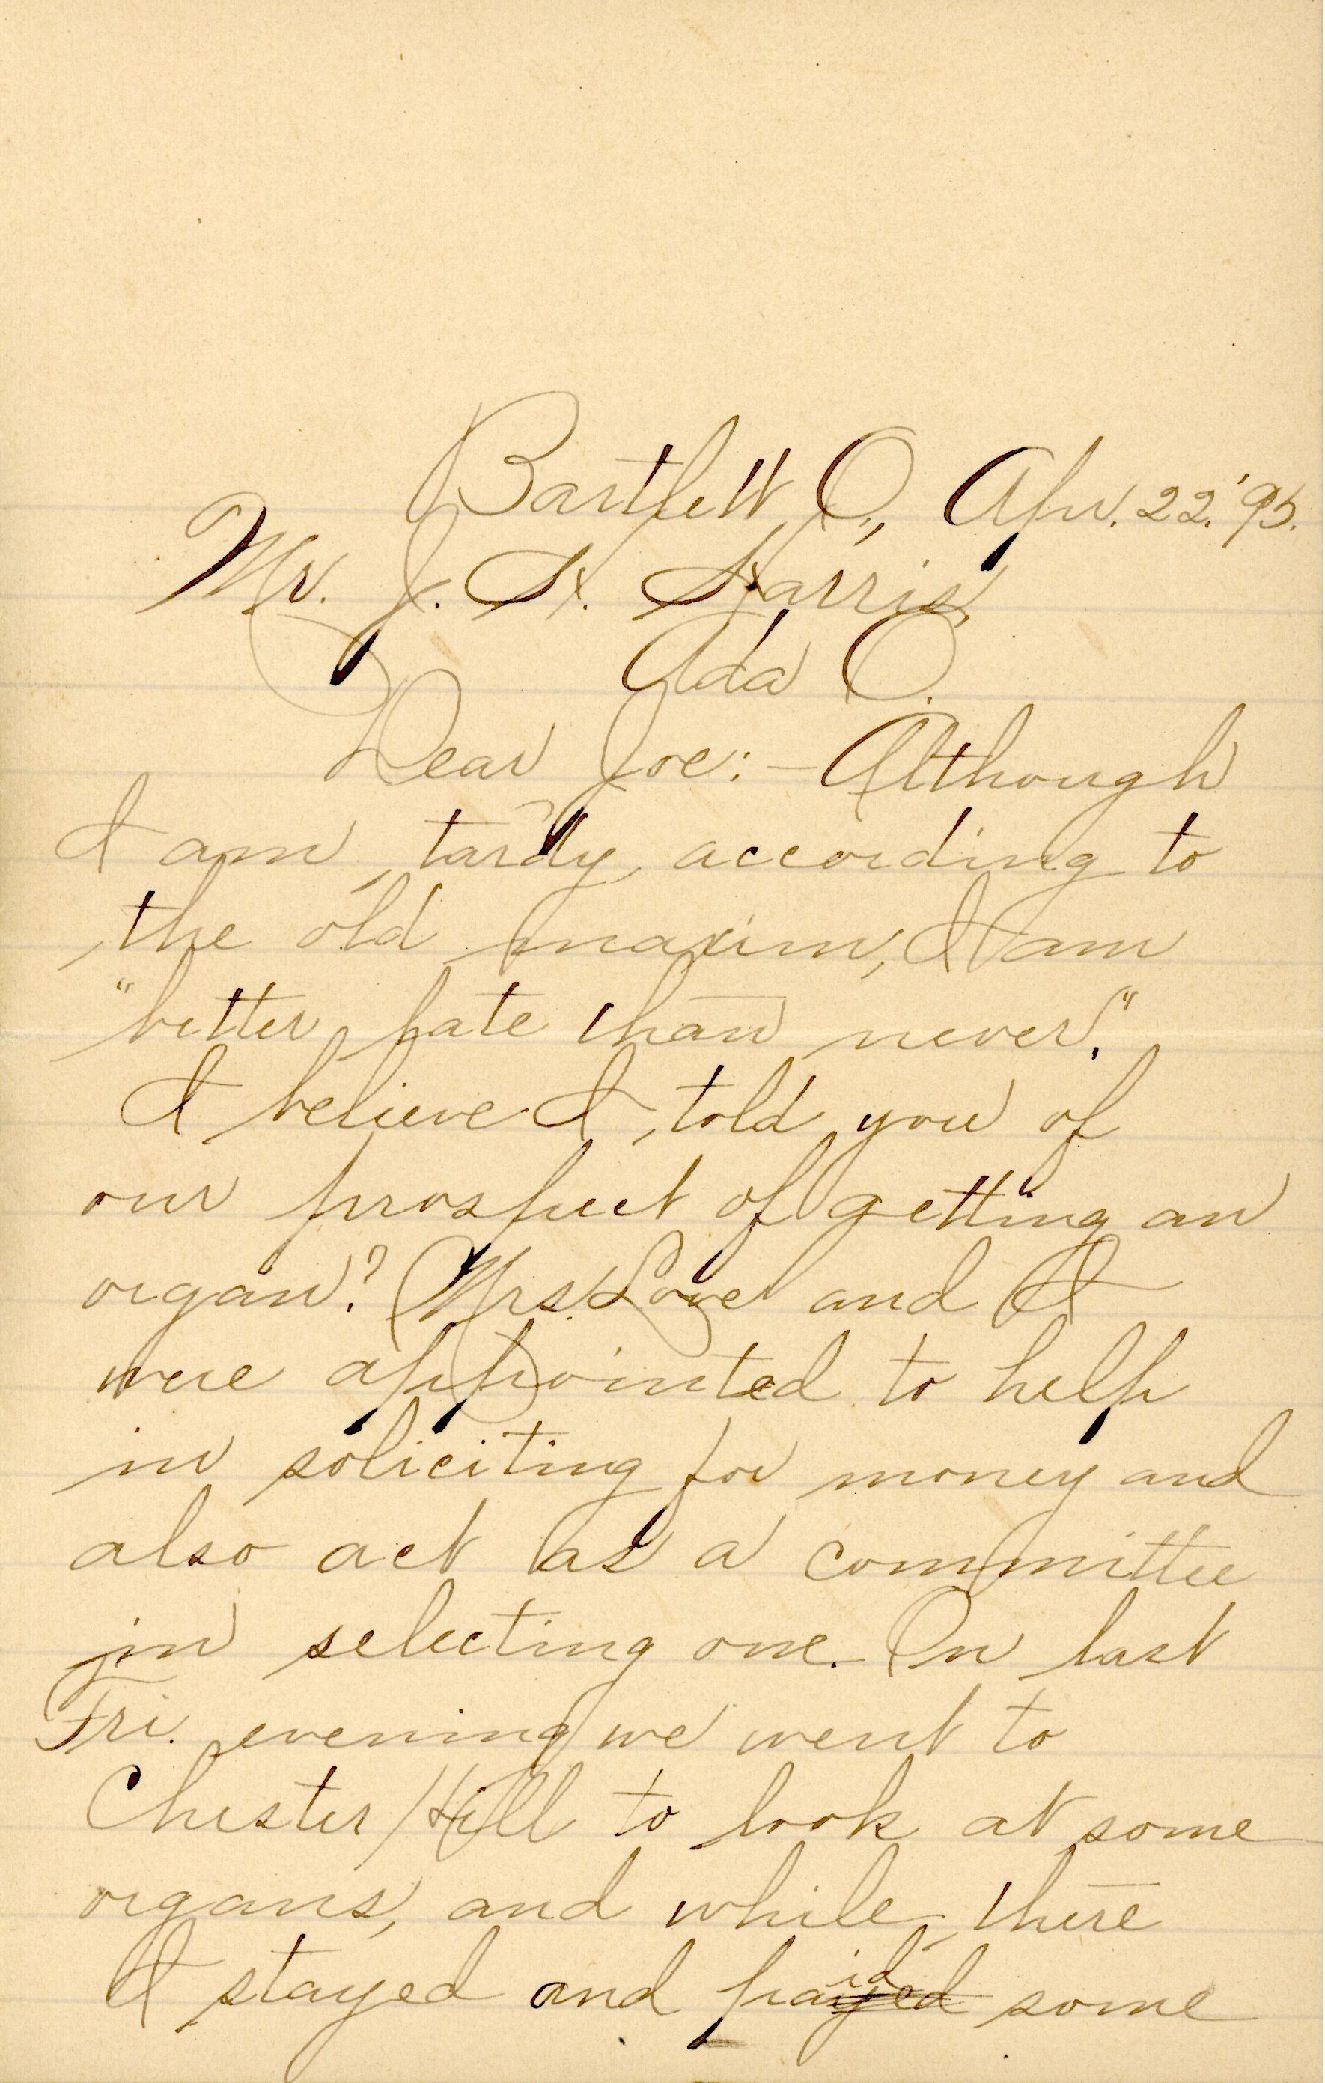 Bartlett O., Apr. 22. '95.
Mr. J. H. Harris,
Ada O.
Dear Joe:- Although
I am tardy, according to
the old maxim, I am
"better late than never."
I believe I told you of
our prospect of getting an
organ? Mrs. Love and I
were appointed to help
in soliciting for money and
also act as a committee
in selecting one. On last
Fri. evening we went to
Chester Hill to look at some
organs, and while there
I stayed and payed id some